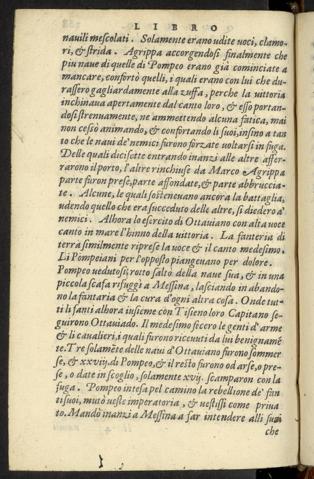 LIBRO
nauili mescolati. Solamente erano udite uoci, clamo-
ri, & strida. Agrippa accorgendosi finalmente che
piu naue di quelle di Pompeo erano già cominciate a
mancare, confortò quelli, i quali erano con lui che du-
rassero gagliardamente alla zuffa, perche la uittoria
inchinaua apertamente dal canto loro, & esso portan-
dosi strenuamente, ne ammettendo alcuna fatica, mai
non cessò animando, & confortando li suoi, infino a tan
to che le naui de' nemici furono forzate uoltarsi in fuga.
Delle quali dicisette entrando inanzi alle altre affer-
rarono il porto, l'altre rinchiuse da Marco Agrippa
parte furon prese, parte affondate, & parte abbruccia-
te. Alcune, le quali sosteneuano ancora la battaglia,
udendo quello che era succeduto delle altre, si diedero a'
nemici. Alhora lo esercito di Ottauiano con alta uoce
canto in mare l'hinno della uittoria. La fanteria di
terra similmente riprese la uoce & il canto medesimo.
Li Pompeiani per l'opposto piangeuano per dolore.
Pompeo uedutosi rotto saltò della naue sua, & in una
piccola scafa rifuggi a Messina, lasciando in abando-
no la fantaria & la cura d'ogni altra cosa. Onde tut-
ti li fanti alhora insieme con Tiseno loro Capitano se-
guirono Ottauiado. Il medesimo fecero le genti d'arme
& li cauallieri, i quali furono riceuuti da lui benignamẽ
te. Tre solamẽte delle naui d'Ottauiano furono sommer
se, & xxviij. di Pompeo, & il resto furono od arse, o pre-
se, o date in scoglio, solamente xvij. scamparon con la
fuga. Pompeo intesa pel camino la rebellione de' fan
ti suoi, mutò ueste imperatoria, & uestissi come priua
to. Mandò inanzi a Messina a far intendere alli suoi
che